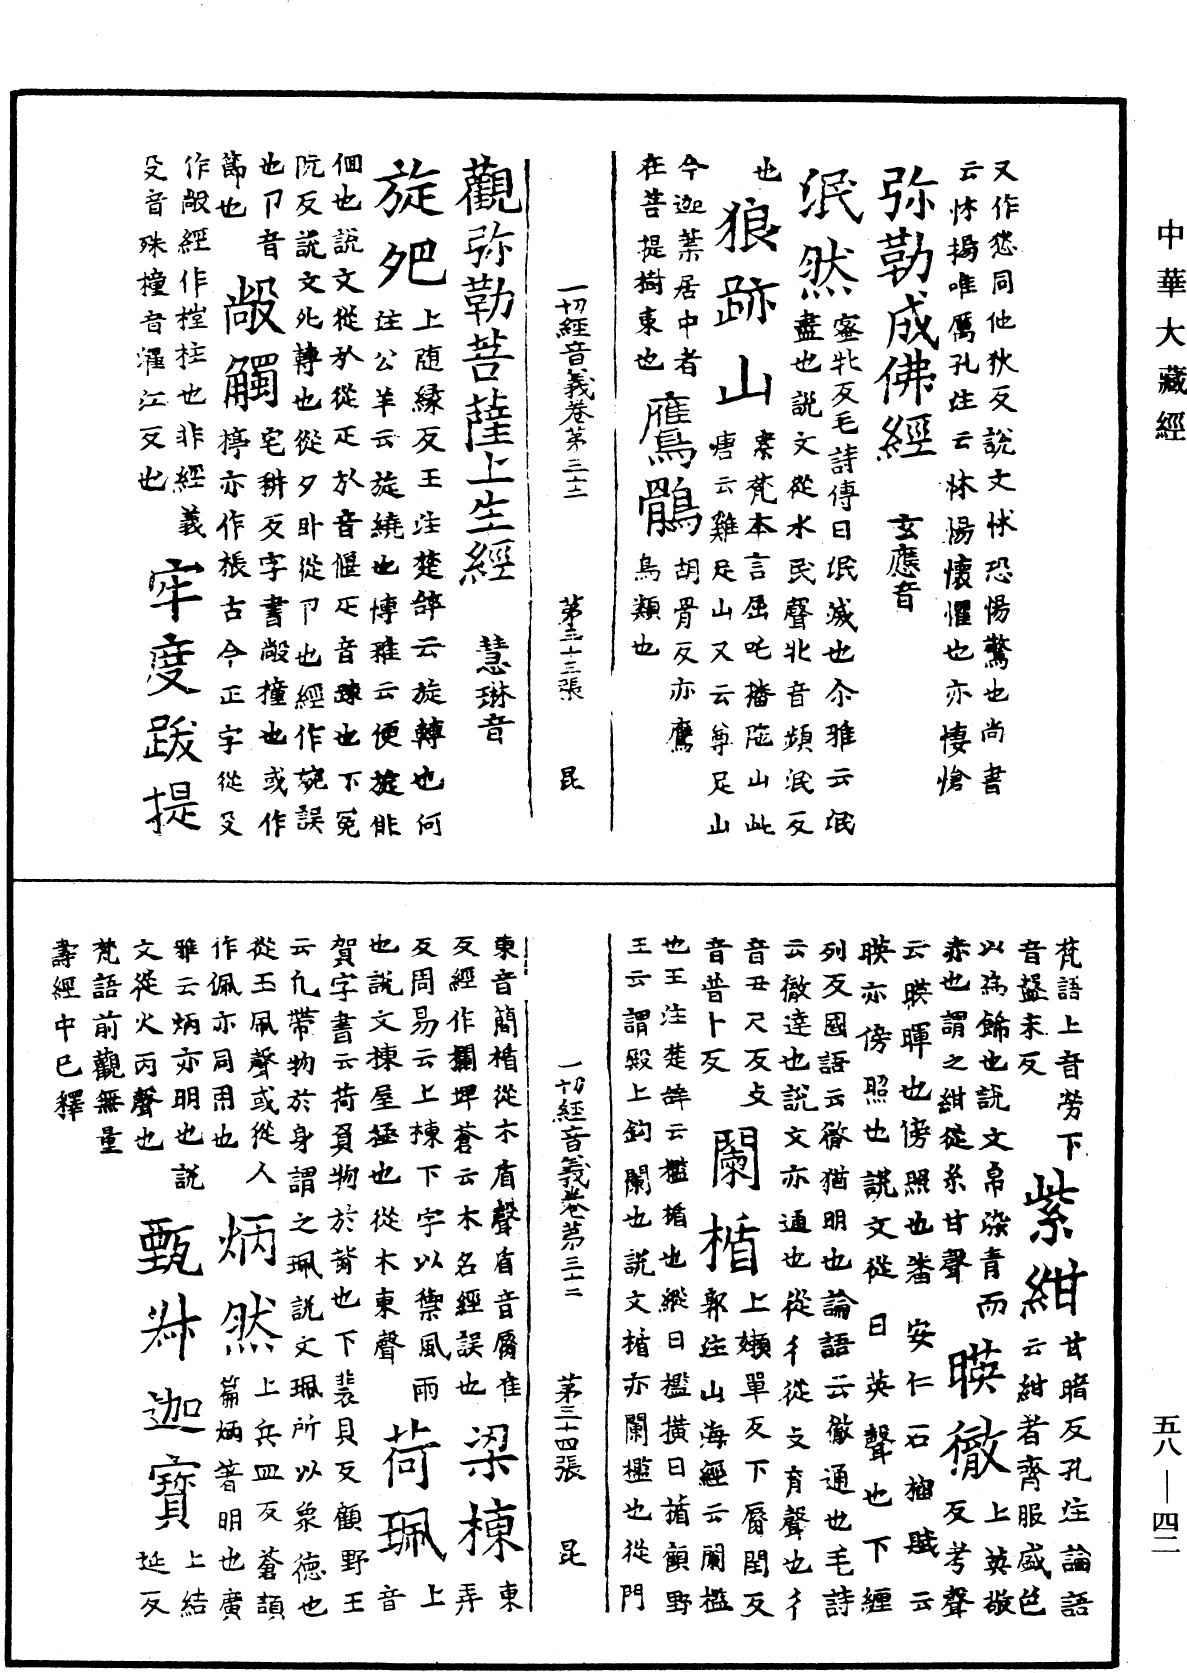 中華大藏經
又作愁同他狄反說文怵恐惕驚也尚書
云怵惕唯厲孔注云怵惕懷懼也亦悽愴
弥勒成佛經 玄應音
泯然 蜜牝反毛詩傳曰泯滅也尒雅云泯
盡也說文從水民聲牝音頻泯反
也 狼跡山 案梵本言屈吒播陁山此
唐云雞足山又云尊足山
今迦葉居中者
在菩提樹東也 鴈鶻 胡骨反亦鷹
鳥類也
一切經音義卷第三十二 第三十三張 昆
觀弥勒菩薩上生經 慧琳音
旋夗 上随緣反王注楚辭云旋轉也何
注公羊云旋繞也博雅云便旋俳
佪也說文從㫃從疋㫃音偃疋音踈也下冤
阮反說文夗轉也從夕卧從卪也經作宛誤
也卪音
節也 敞觸 宅耕反字書敞撞也或作
揨亦作棖古今正字從殳
作敞經作樘柱也非經義
殳音殊撞音濯江反也 牢度跋提
梵語上音勞下
音盤末反 紫紺 甘暗反孔注論語
云紺者齊服盛色
以為飾也說文帛染青而
赤也謂之紺從糸甘聲 暎徹 上英敬
反考聲
云暎暉也傍照也潘安仁石榴賦云
暎亦傍照也說文從日英聲也下纏
列反國語云徹猶明也論語云徹通也毛詩
云徹達也說文亦通也從彳從攴育聲也彳
音丑尺反攴
音普卜反 闌楯 上嬾單反下脣閏反
郭注山海經云闌檻
也王注楚辞云檻楯也縱曰檻橫曰楯顧野
王云謂殿上鈎闌也說文楯亦闌檻也從門
一切經音義卷第三十二 第三十四張 昆
東音簡楯從木盾聲盾音脣准
反經作攔埤蒼云木名經誤也 梁棟 東
弄
反周易云上棟下宇以禦風雨
也說文棟屋極也從木東聲 荷珮 上
音
賀字書云荷負物於背也下裴貝反顧野王
云凢帶物於身謂之珮說文珮所以象德也
從玉凧聲或從人
作佩亦同用也 炳然 上兵皿反蒼頡
篇炳著明也廣
雅云炳亦明也說
文從火丙聲也 甄𦙶迦寶 上結
延反
梵語前觀無量
壽經中已釋
五八—四二